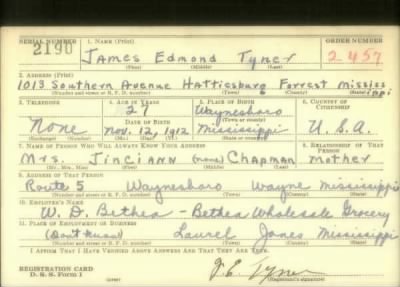 SERIAL NUMBER 1. NAME (Print) ORDER NUMBER
2190 James Edmond Tyner 2457
(First) (Middle) (Last)
2. ADDRESS (Print)
1013 Southern Avenue Hattiesburg Forrest Mississippi
(Number and street or R. F. D. number) (Town) (County) (State)
3. TELEPHONE 4. AGE IN YEARS 5. PLACE OF BIRTH 6. COUNTRY OF CITIZENSHIP
27 Waynesboro
DATE OF BIRTH (Town or county)
None Nov. 12, 1912 Mississippi U.S.A.
(Exchange) (Number) (Mo.) (Day) (Yr.) (State or country)
7. NAME OF PERSON WHO WILL ALWAYS KNOW YOUR ADDRESS 8. RELATIONSHIP OF THAT PERSON
Mrs. Jinciann (none) Chapman mother
(Mr., Mrs., Miss) (First) (Middle) (Last)
9. ADDRESS OF THAT PERSON
Route 5 Waynesboro Wayne Mississippi
(Number and street or R. F. D. number) (Town) (County) (State)
10. EMPLOYER'S NAME
W. D. Bethea - Bethea Wholesale Grocery
11. PLACE OF EMPLOYMENT OR BUSINESS
(Don't Know) Laurel Jones Mississippi
(Number and street or R. F. D. number) (Town) (County) (State)
I AFFIRM THAT I HAVE VERIFIED ABOVE ANSWERS AND THAT THEY ARE TRUE.
REGISTRATION CARD
D. S. S. Form 1 J. E. Tyner
(Registrant's signature)